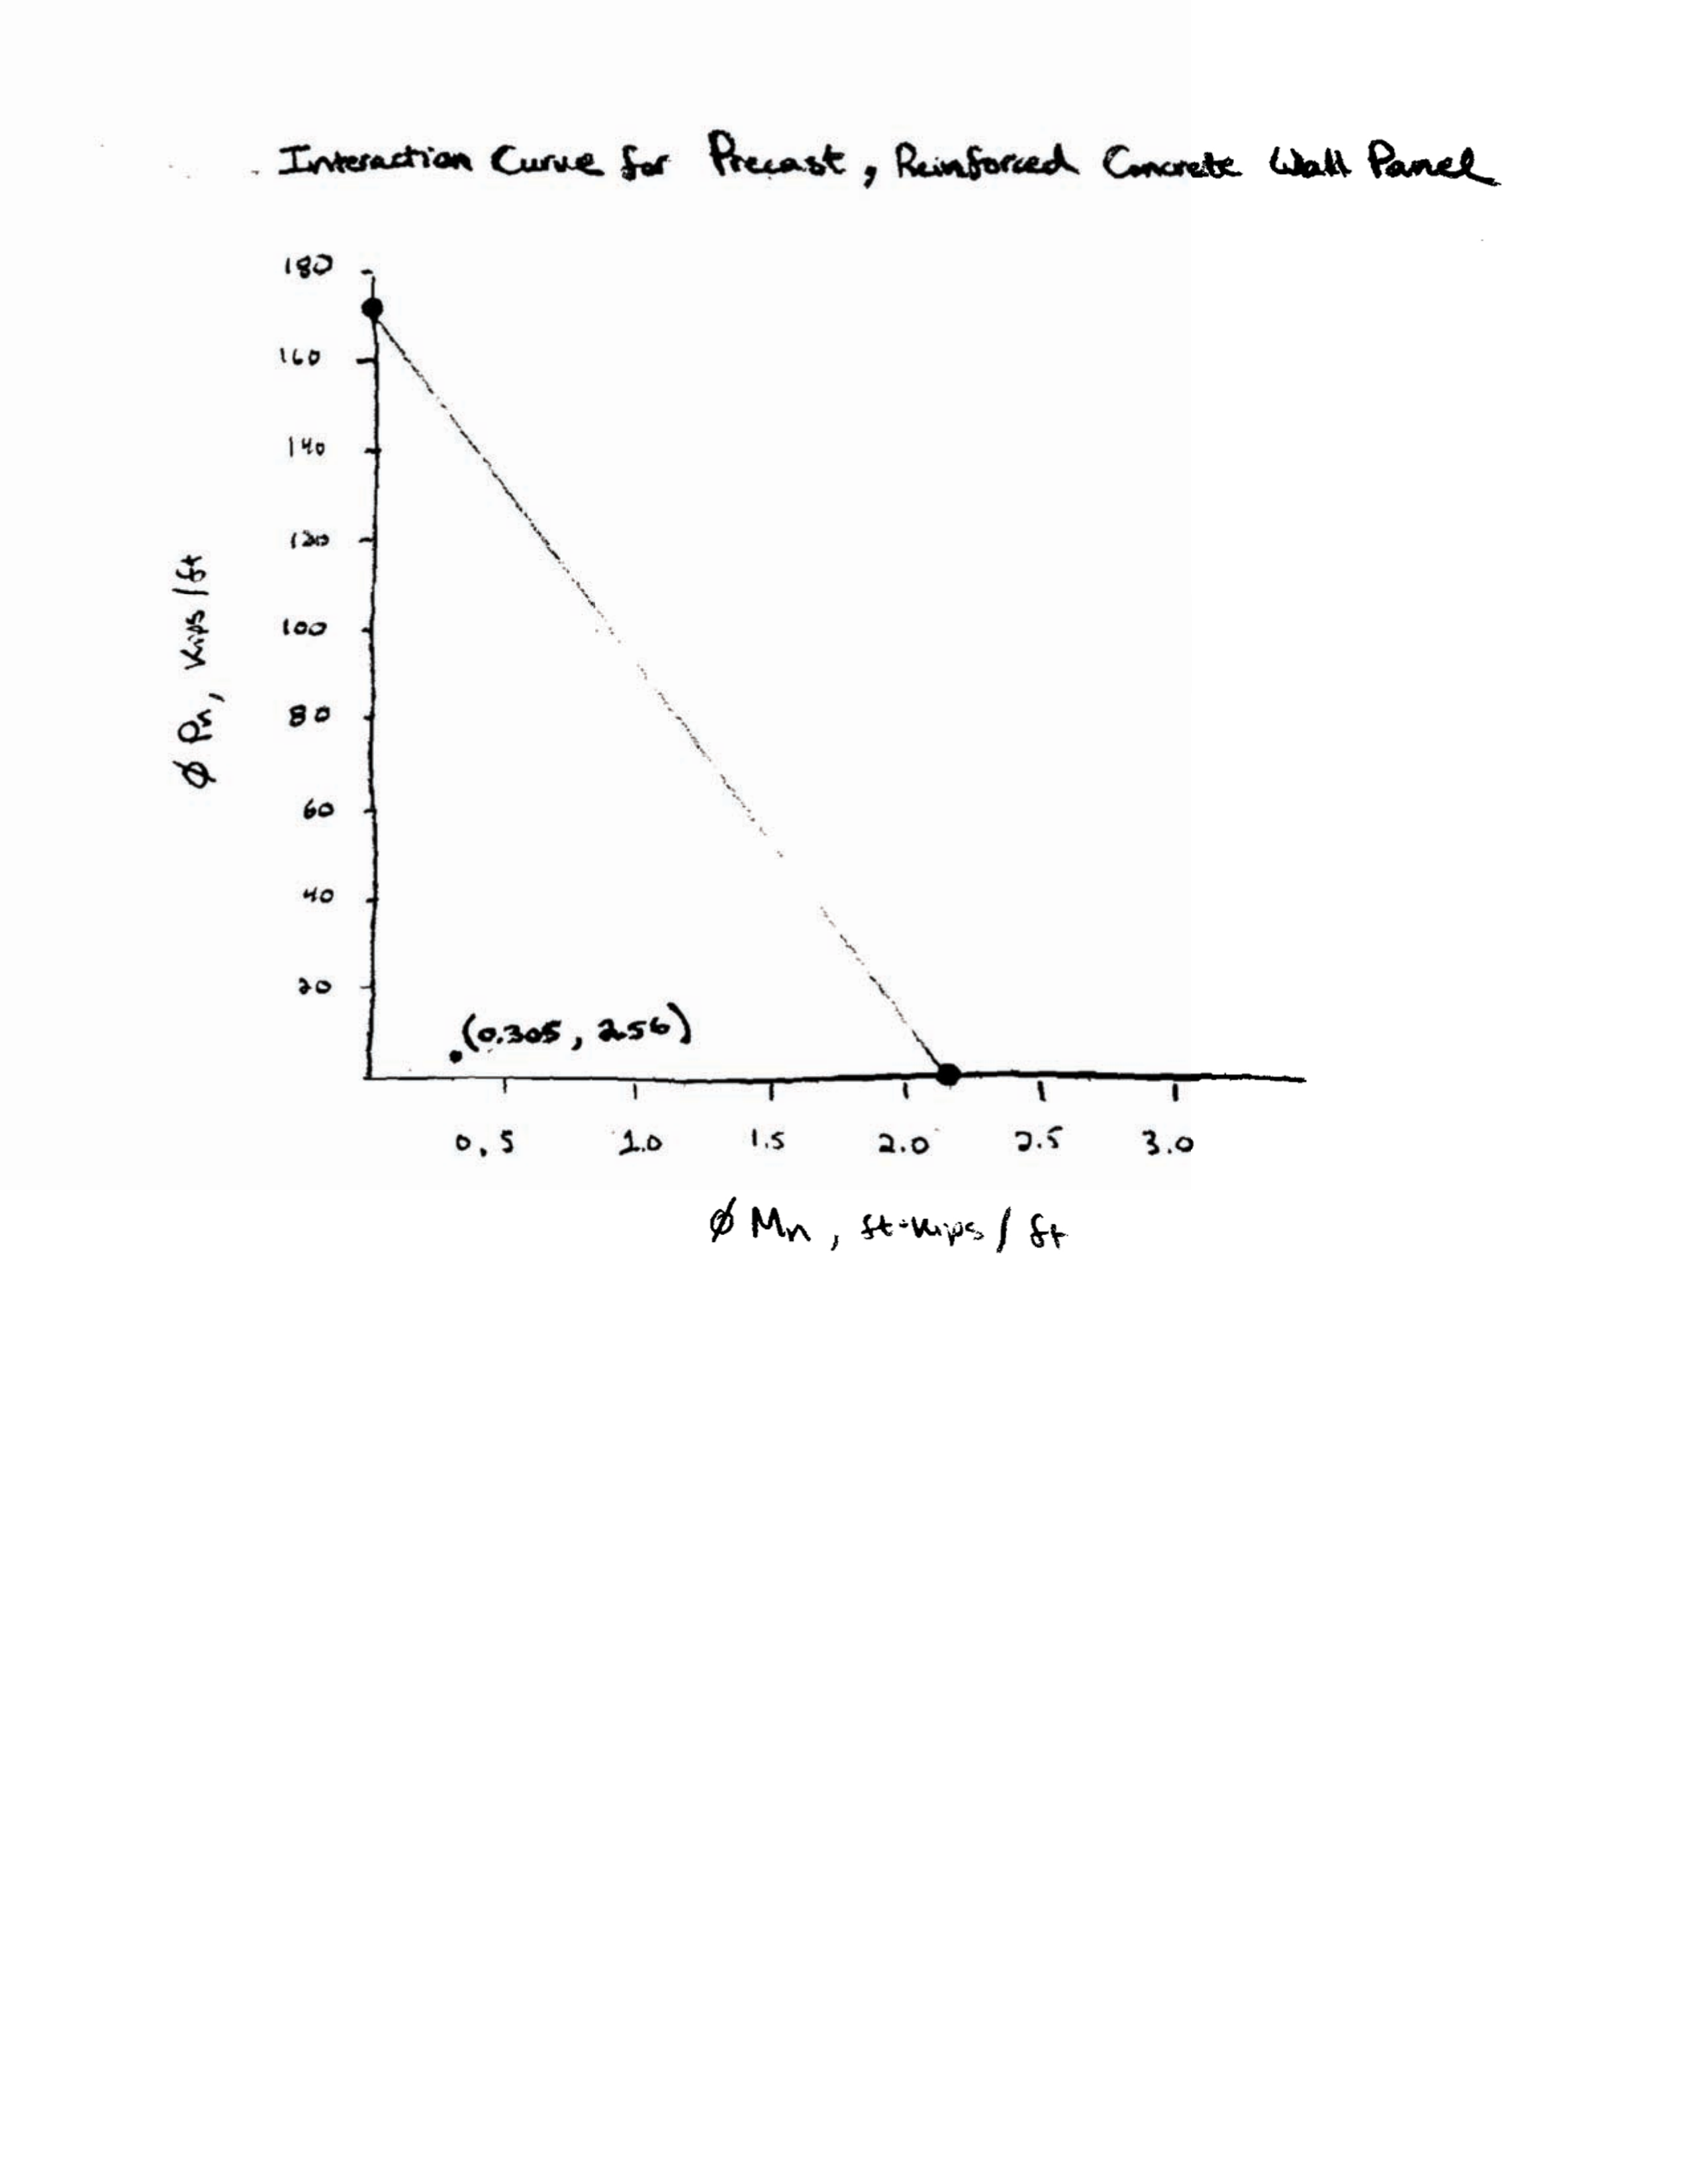 Interaction Curve for Precast, Reinforced Concrete Wall Panel
180
160
140
120
100
80
60
40
20
ø Pn, Kips/ft
(0.305, 2.56)
0.5 1.0 1.5 2.0 2.5 3.0
ø Mn, ft-kips/ft